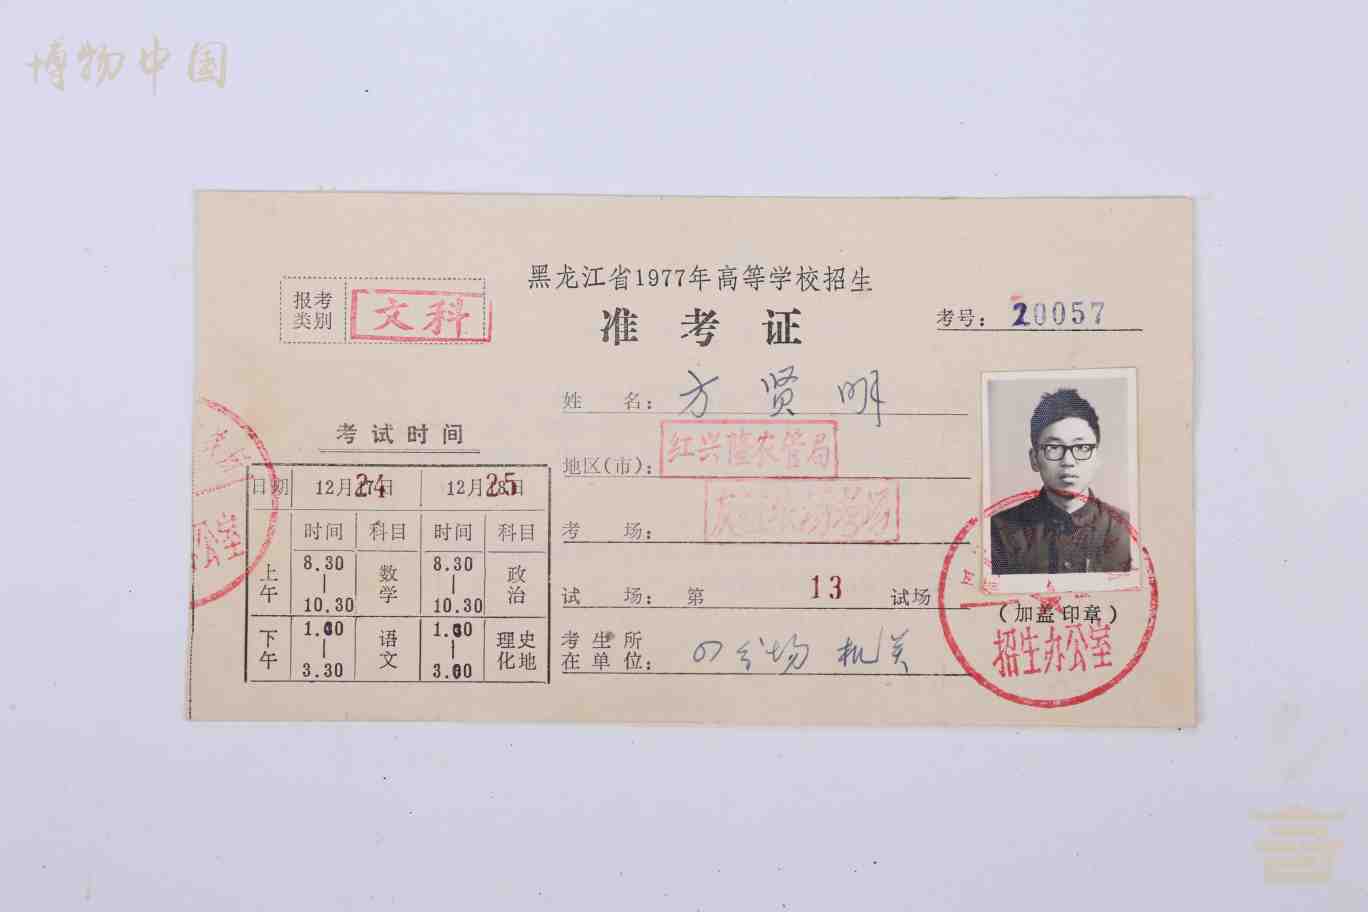 博物中国
黑龙江省1977年高等学校招生
准考证
报考类别 文科
考号: 20057
姓名: 方贤明
地区(市): 红兴隆农管局
考场:
试场: 第 13 试场
考生所在单位: 四分场 机关
(加盖印章)
招生办公室
公室
考试时间
日期 12月24日 12月25日
时间 科目 时间 科目
上午 8.30-10.30 数学 8.30-10.30 政治
下午 1.00-3.30 语文 1.00-3.00 理化 史地